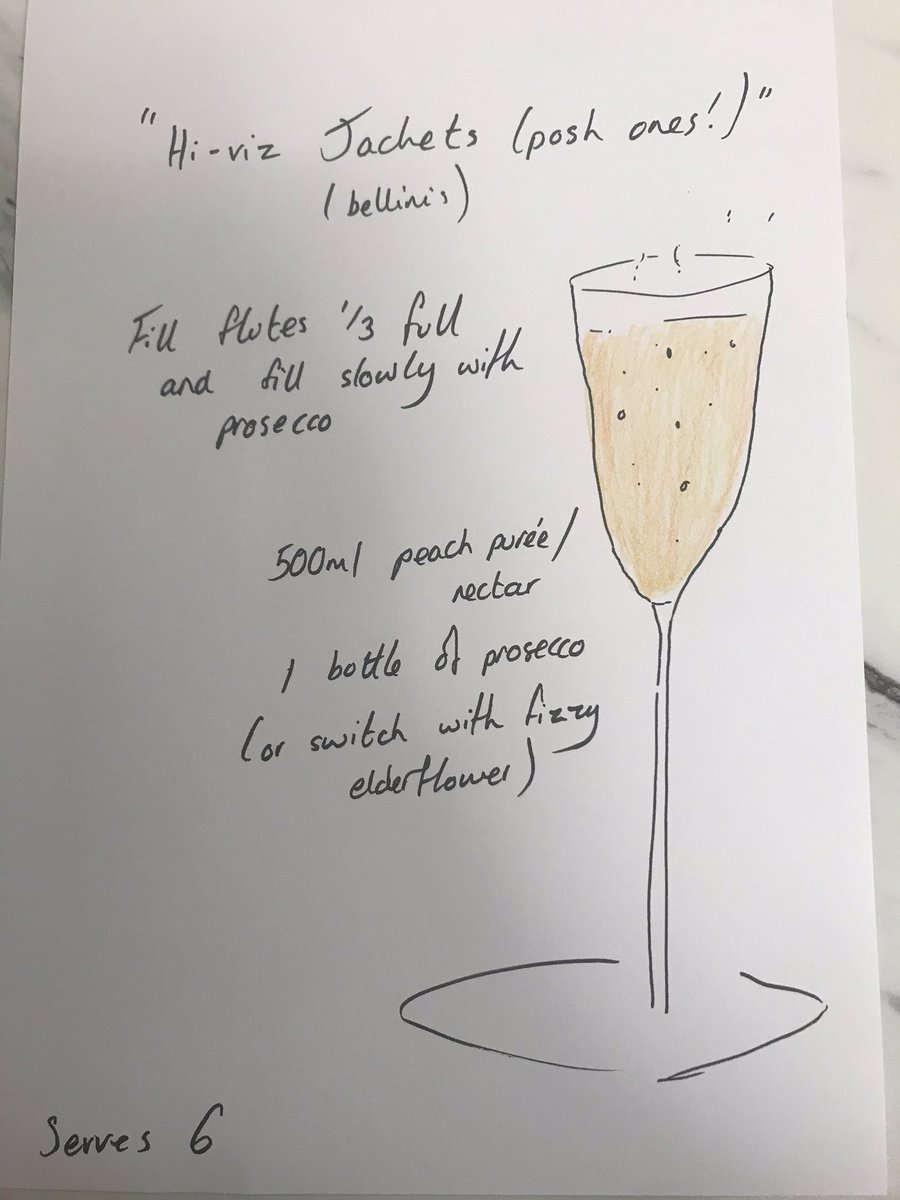 "Hi-viz Jackets (posh ones!)"
(bellinis)
Fill flutes 1/3 full
and fill slowly with
prosecco
500ml peach purée/
nectar
1 bottle of prosecco
(or switch with fizzy
elderflower)
Serves 6